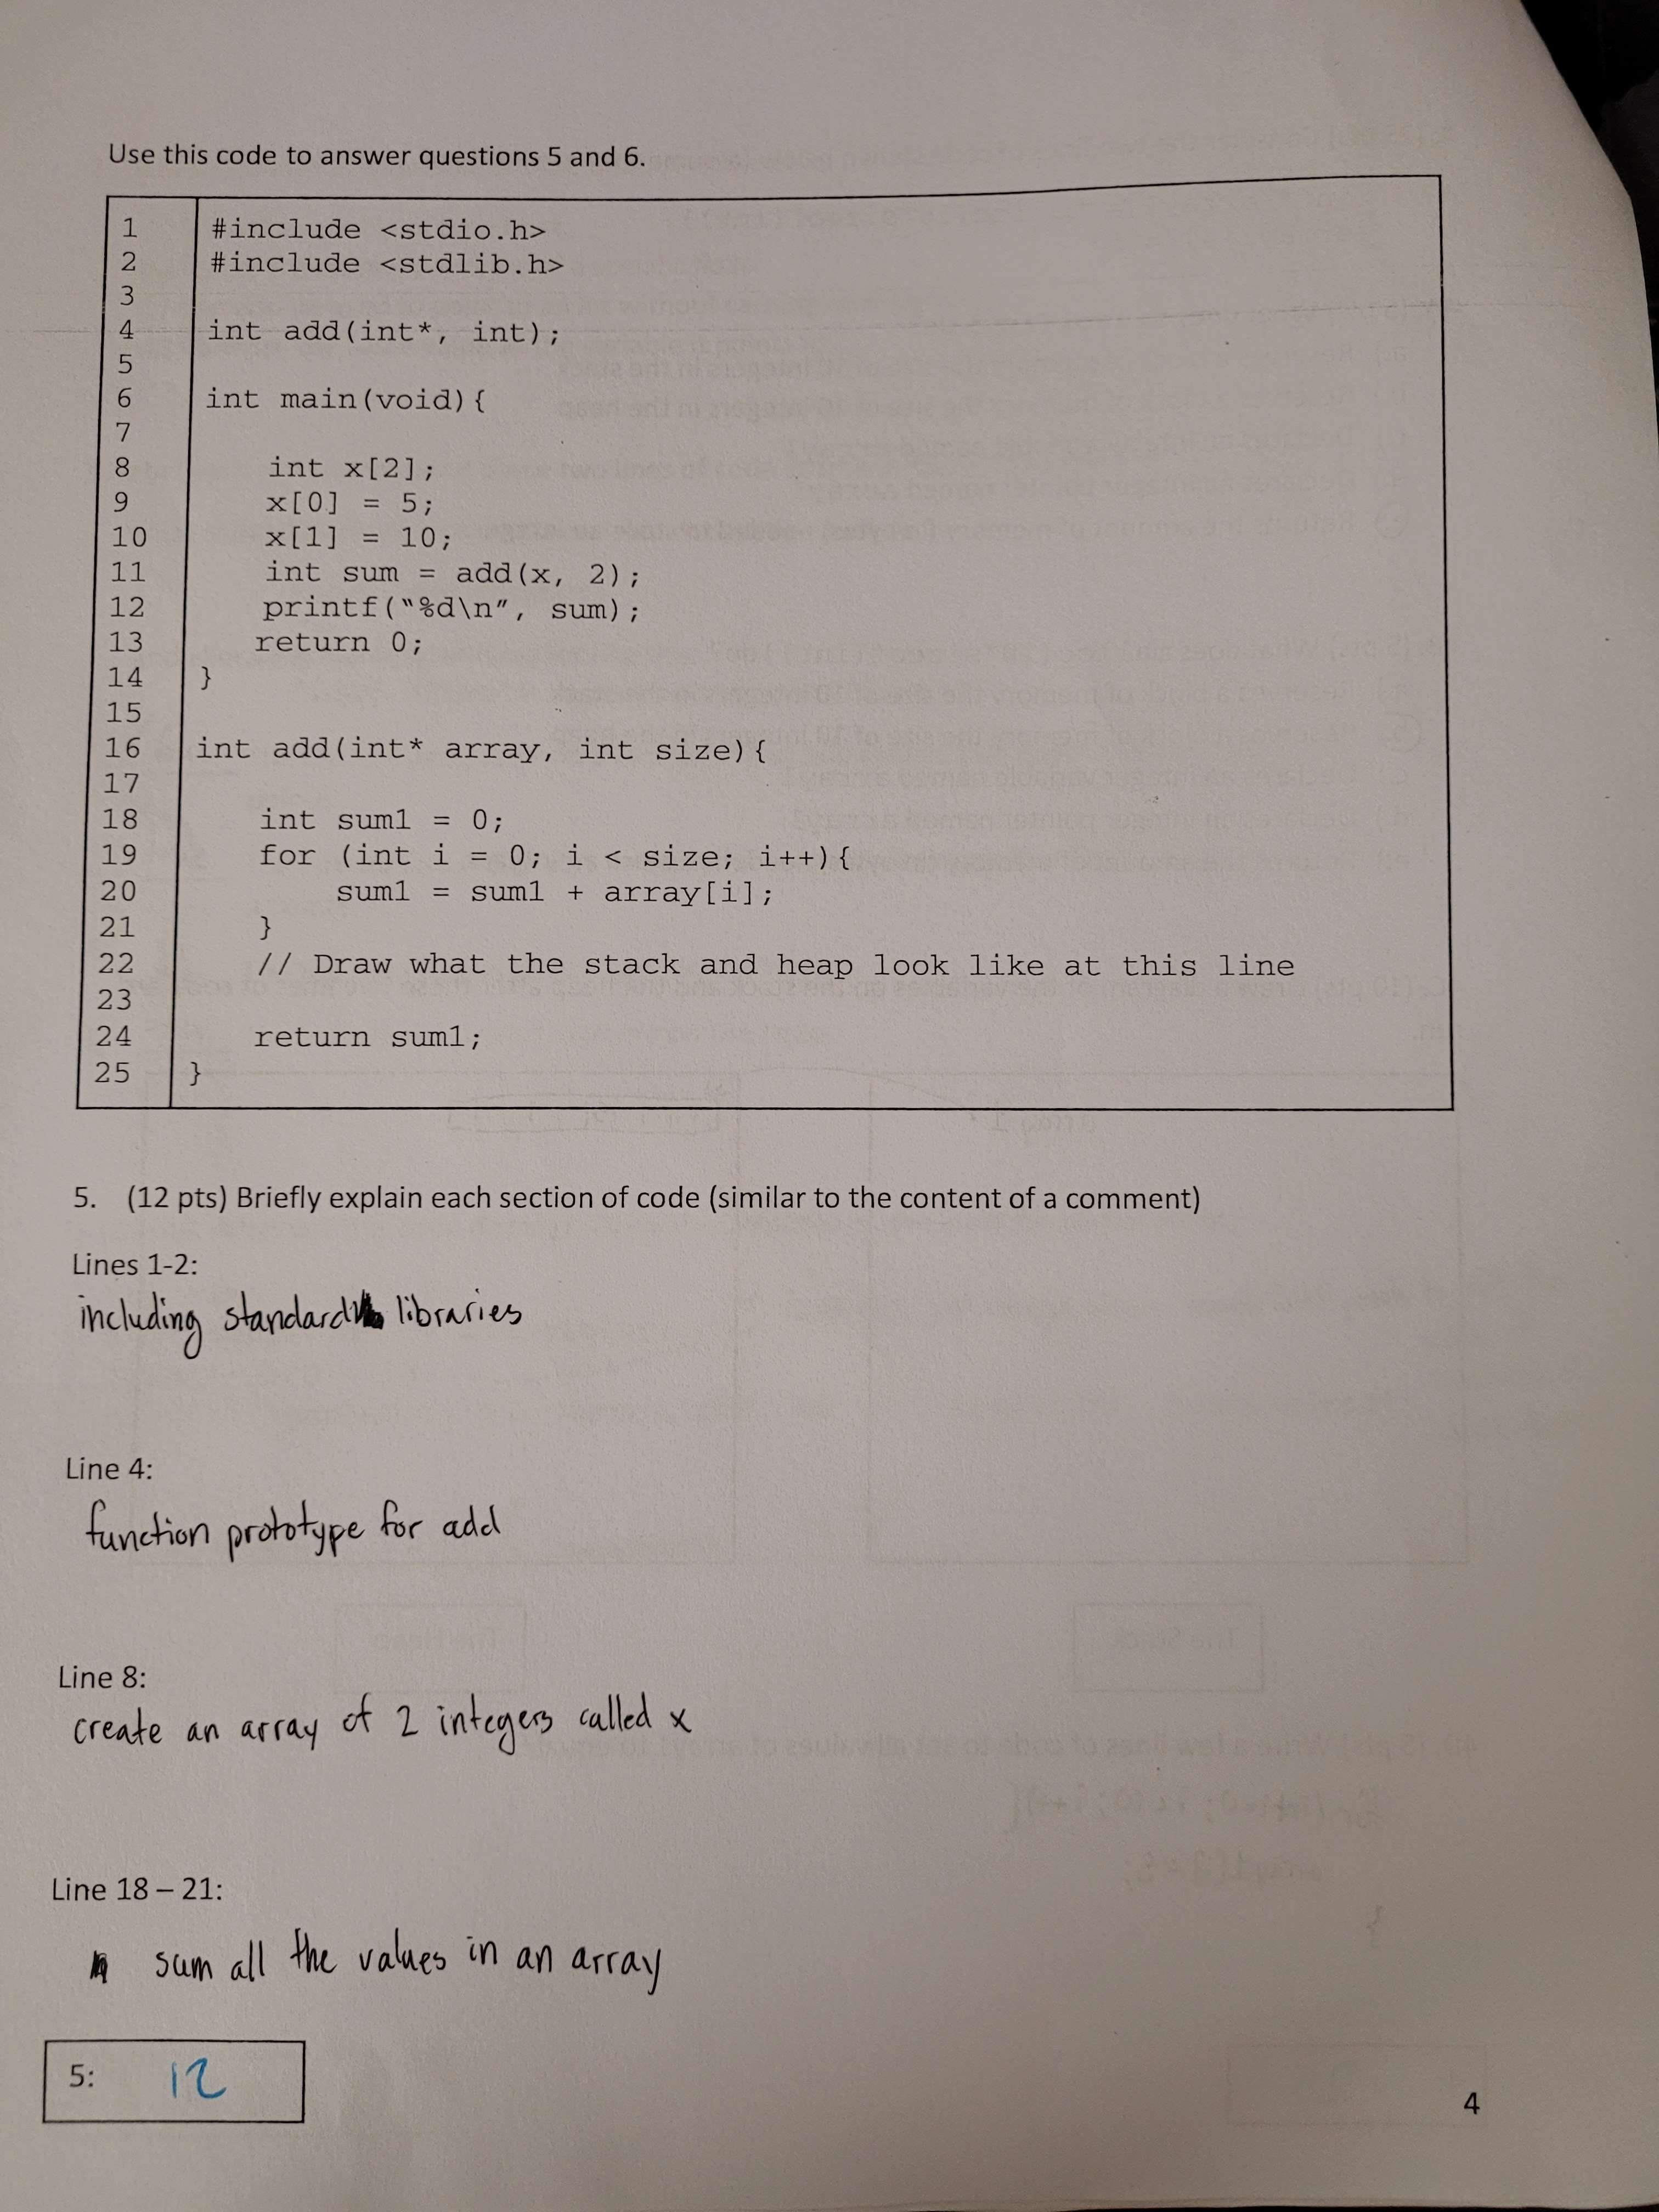 Use this code to answer questions 5 and 6.
1 #include <stdio.h>
2 #include <stdlib.h>
3
4 int add(int*, int);
5
6 int main(void){
7
8 int x[2];
9 x[0] = 5;
10 x[1] = 10;
11 int sum = add(x, 2);
12 printf("%d\n", sum);
13 return 0;
14 }
15
16 int add(int* array, int size){
17
18 int sum1 = 0;
19 for (int i = 0; i < size; i++){
20 sum1 = sum1 + array[i];
21 }
22 // Draw what the stack and heap look like at this line
23
24 return sum1;
25 }
5. (12 pts) Briefly explain each section of code (similar to the content of a comment)
Lines 1-2:
including standard libraries
Line 4:
function prototype for add
Line 8:
create an array of 2 integers called x
Line 18 – 21:
sum all the values in an array
5: 12
4